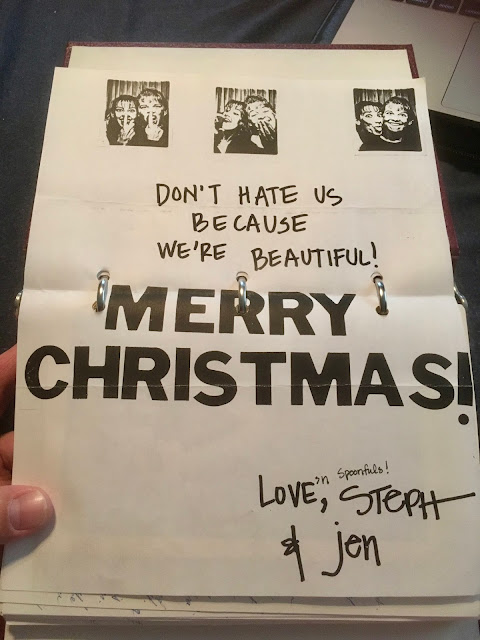 DON'T HATE US
BECAUSE
WE'RE BEAUTIFUL!
MERRY
CHRISTMAS!
LOVE 'n Spoonfuls!, STEPH
& jen